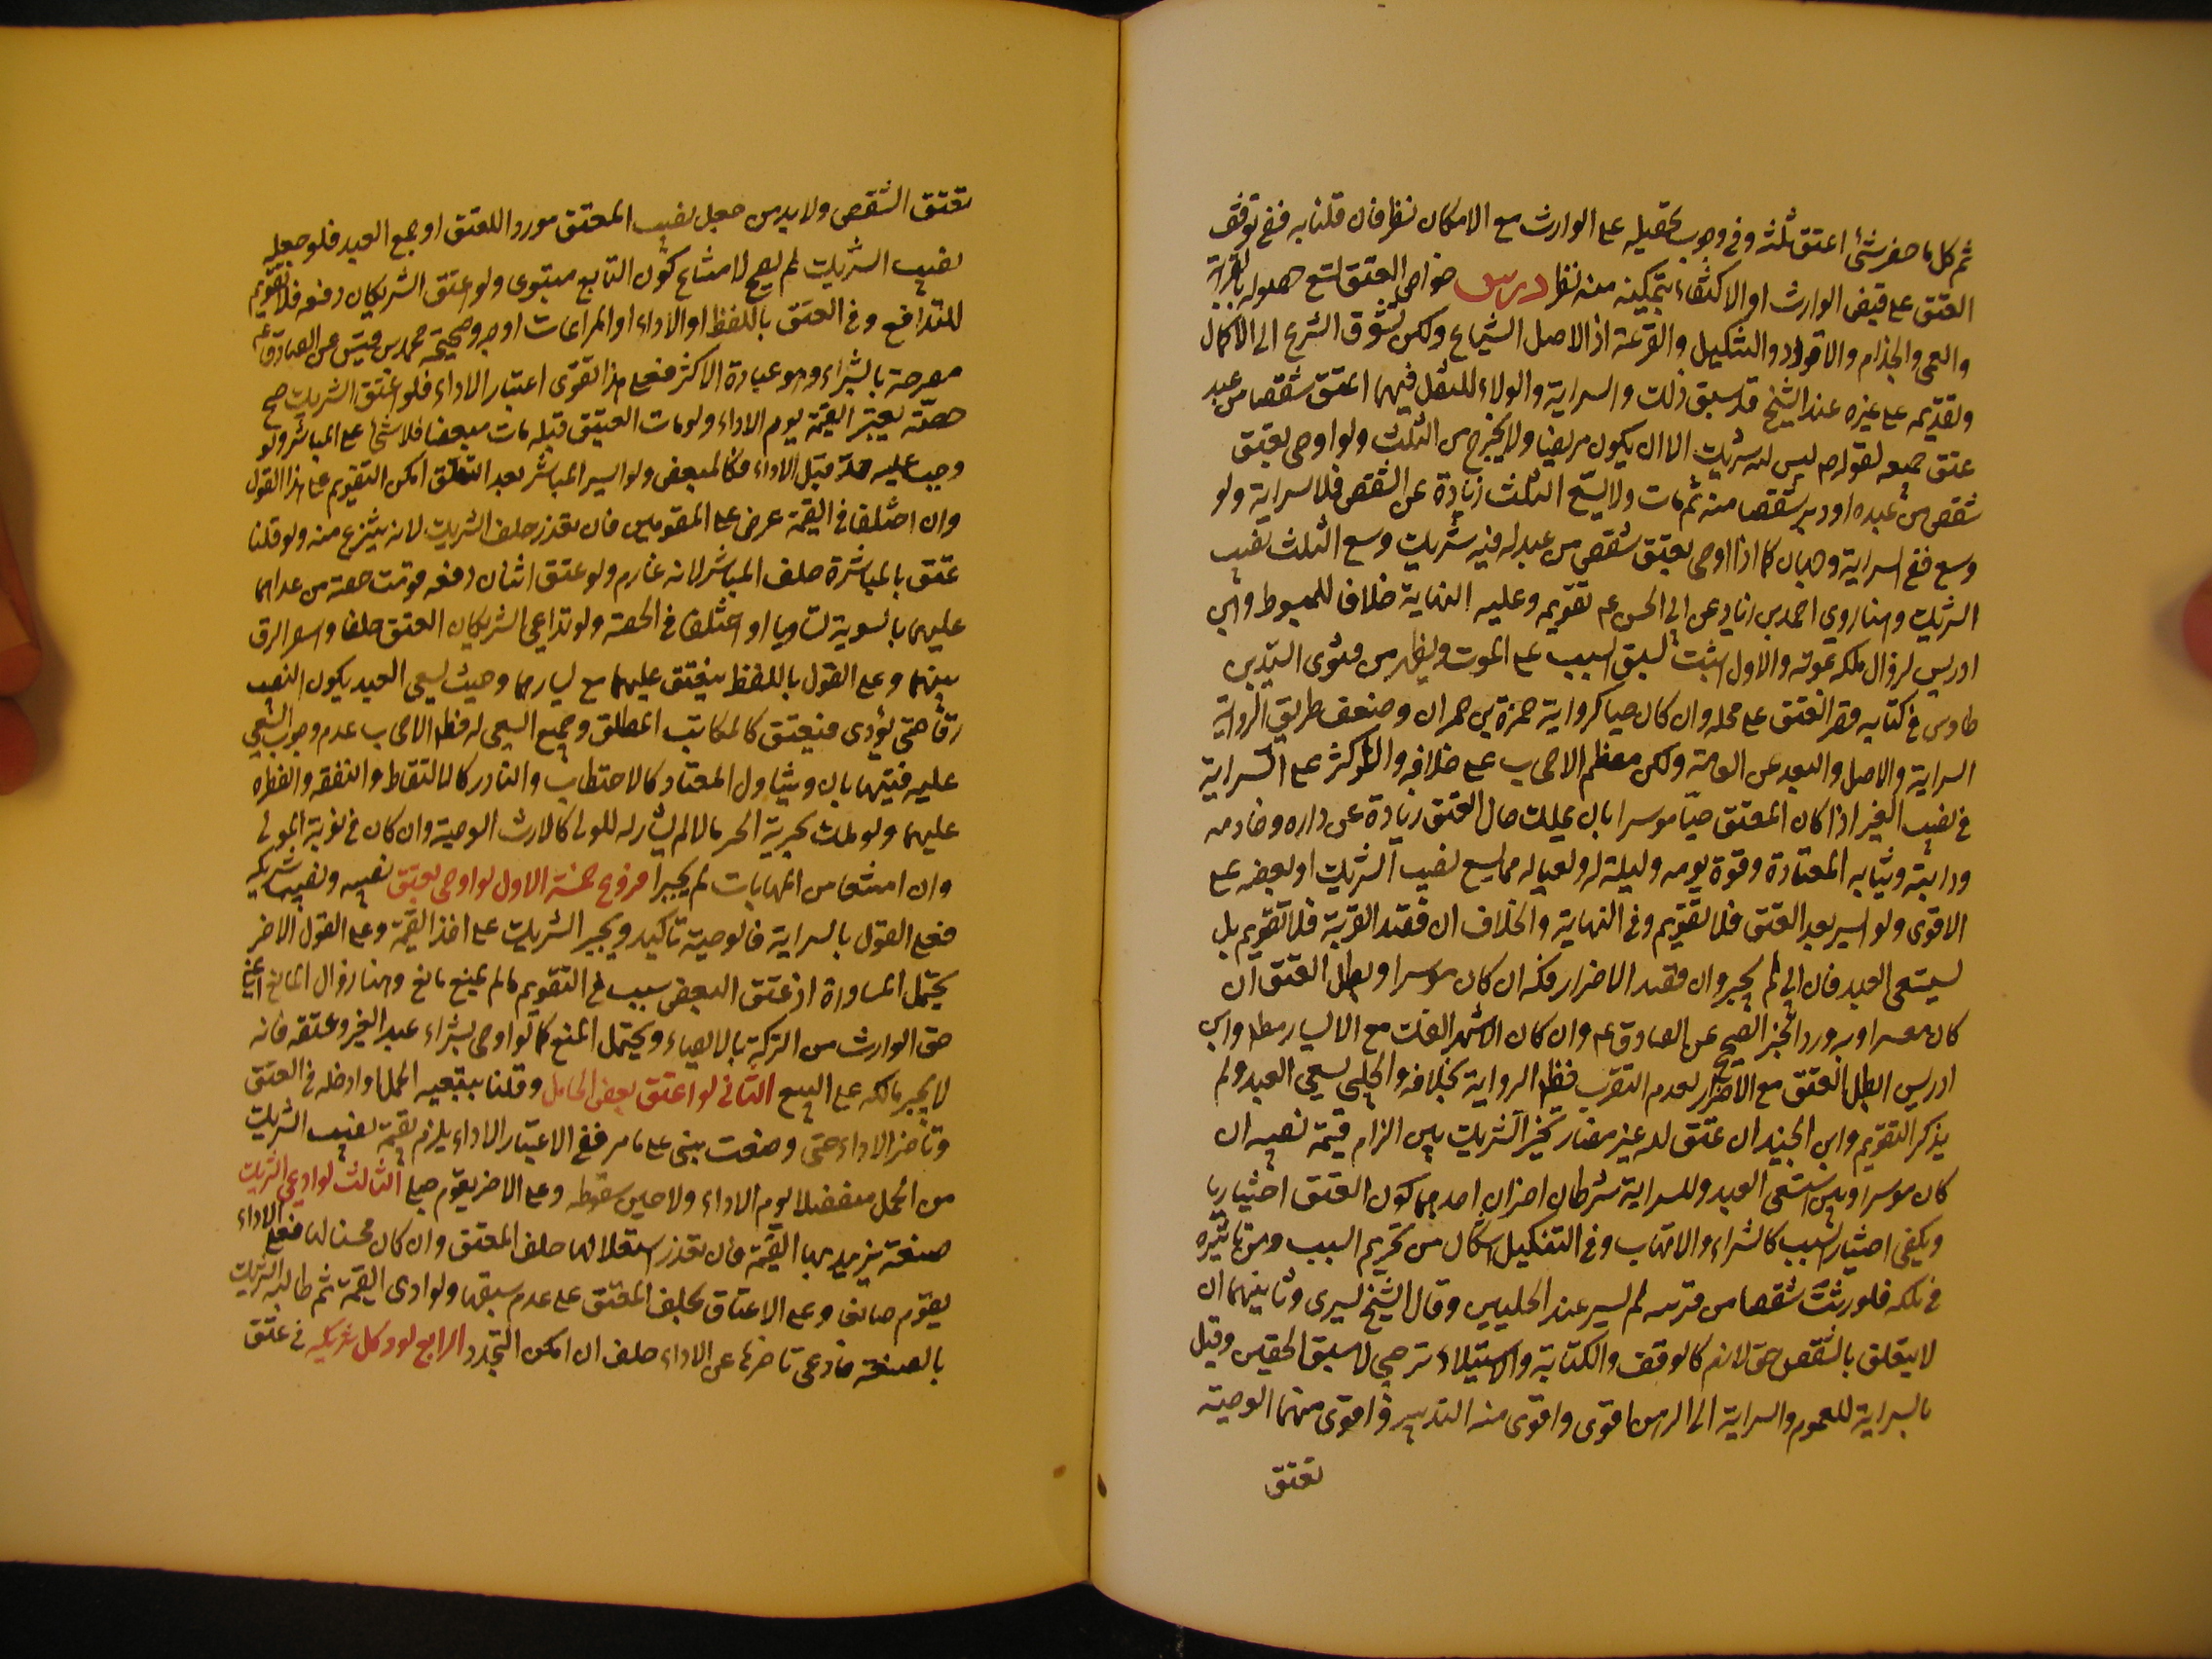 ثم كل ما حضر شئ اعتق ثلثه وفي وجوب تحصيله على الوارث مع الامكان نظر فان قلنا به ففي توقف
العتق على قبض الوارث او الاكتفاء بتمكينه منه نظر درس خواص العتق تسع حصوله بالقرابة
والعمى والجذام والاقعاد والتنكيل والقرعة اذ الاصل الشياع ولكن تشوق الشرع الى الاكمال
وتقديمه على غيره عند الشيخ قد سبق ذلك والسراية والولاء لليقل فيهما اعتق شقصا من عبد
عتق جميعه لقوله ص ليس لله شريك الا ان يكون مريضا ولا يخرج من الثلث ولو اوصى بعتق
شقص من عبده او دبر شقصا منه ثم مات ولا يسع الثلث زيادة عن الشقص فلا سراية ولو
وسع ففي السراية وجهان كما اذا اوصى بعتق شقص من عبد له فيه شريك وسع الثلث نصيب
الشريك وهنا روى احمد بن زياد عن ابي الحسن عم تقويمه وعليه النهاية خلافا للمبسوط وابن
ادريس لزوال ملكه بموته والاول اثبت لسبق السبب على الموت ويظهر من فتوى السيد بن
طاوس في كتابه قصر العتق على محله وان كان حيا كرواية حمزة بن حمران وضعف طريق الرواية
السراية والاصل والبعد عن العامة ولكن معظم الاصحاب على خلافه والاكثر على السراية
في نصيب الغير اذا كان المعتق حيا موسرا بان يملك حال العتق زيادة عن داره وخادمه
ودابته وثيابه المعتادة وقوة يومه وليلة له ولعياله مما يسع نصيب الشريك او بعضه على
الاقوى ولو ايسر بعد العتق فلا تقويم وفي النهاية والخلاف ان قصد القربة فلا تقويم بل
يستسعى العبد فان ابى لم يجبر وان قصد الاضرار فكه ان كان موسرا وبطل العتق ان
كان معسرا وبه ورد الخبر الصحيح عن الصادق عم وان كان الاشهر الفك مع الايسار مطه وابن
ادريس ابطل العتق مع الاضرار لعدم التقرب فظه الرواية بخلافه والحلبي يسعى العبد ولم
يذكر التقويم وابن الجنيد ان عتق لله غير مضار تخير الشريك بين الزام قيمة نصيبه ان
كان موسرا وبين استسعى العبد وللسراية شرطان اخران احدهما كون العتق اختياريا
ويكفي اختيار السبب كالشراء والاتهاب وفي التنكيل اشكال من تحريم السبب ومن تاثيره
في ملكه فلو ورثت شقصا من قريبه لم يسر عند الحليين وقال الشيخ يسرى وثانيهما ان
لا يتعلق بالشقص حق لازم كالوقف والكتابة والاستيلاد ترجيحا لاسبق الحقين وقيل
بالسراية للعموم والسراية الى الرهن اقوى واقوى منه التدبير واقوى منهما الوصية
تعتق
تعتق الشقص ولا بد من جعل نصيب المعتق مورد اللعتق او جميع العبد فلو جعله
نصيب الشريك لم يصح لامتناع كون التابع متبوعى ولو اعتق الشريكان دفعه فلا تقويم
للتدافع وفي العتق باللفظ او الاداء او المراعات اوجه وصحيحة محمد بن قيس عن الصادق عم
مصرحة بالشراء وهو عبارة الاكثر فعلى هذا تقوى اعتبار الاداء فلو اعتق الشريك صح
حصته يعتبر القيمة يوم الاداء ولو مات العتيق قبله مات مبعضا فلا شئ على المباشر ولو
وجب عليه حد قبل الاداء فكالمبعض ولو ايسر المباشر بعد التعلق امكن التقويم على هذا القول
وان اختلفا في القيمة عرض على المقومين فان تعذر حلف الشريك لانه ينتزع منه ولو قلنا
عتق بالمباشرة حلف المباشر لانه غارم ولو عتق اثنان دفعه قومت حصته من عداهما
عليهما بالسوية تساويا او اختلفا في الحصة ولو تداعى الشريكان العتق حلفا واستقر الرق
بينهما وعلى القول باللفظ ينعتق عليهما مع يسارهما وحيث يسعى العبد يكون النصيب
رقا حتى يؤدى فيعتق كالمكاتب المطلق وجميع السعى له فظه الاصحاب عدم وجوب السعي
عليه فيتهايان ويتناول المعتاد كالاحتطاب والنادر كالالتقاط والنفقه والفطره
عليهما ولو ملك بجزئه الحر مالا لم يشارله للمولى كالارث الوصية وان كان في نوبة المولى
وان امتنعا من المهايات لم يجبرا فروع خمسة الاول لو اوصى بعتق نصيبه ونصيب شريكه
فعلى القول بالسراية فالوصية تاكيد ويجبر الشريك على اخذ القيمة وعلى القول الاخر
يحتمل المساواة اذ عتق البعض سبب في التقويم ما لم يمنع مانع وهنا زوال المانع اعني
حق الوارث من التركة بالايصاء ويحتمل المنع كما لو اوصى بشراء عبد الغير وعتقه فانه
لا يجبر مالكه على البيع الثاني لو اعتق بعض الحامل وقلنا بتبعيه الحمل او ادخله في العتق
وتاخر الاداء حتى وضعت بنى على ما مر ففي الاعتبار الاداء يلزم بقيمة نصيب الشريك
من الحمل منفصلا يوم الاداء ولا حين سقوطه وعلى الاخر يقوم حبلى الثالث لو ادعى الشريك
صنعة يزيد بها القيمة فان تعذر استعلامها حلف المعتق وان كان محسنا لها فعلى الاداء
يقوم صانعا وعلى الاعتاق يحلف المعتق على عدم سبقها ولو ادى القيمة ثم طالبه الشريك
بالصنعة فادعى تاخرها عن الاداء حلف ان امكن التجدد الرابع لو وكل شريكه في عتق